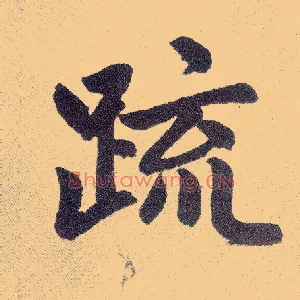 疏
Shufawang.CN